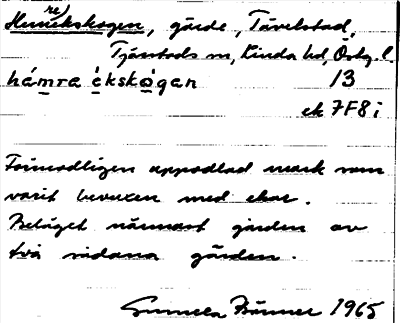 Humrekskogen, gärde, Tävelstad,
Tjärstads sn, Kinda hd, Östg. l.
hámra èkskògan 13
ek 7F8i
Förmodligen uppodlad mark som
varit bevuxen med ekar.
Beläget närmast gården av
två sådana gärden.
Gunnela 1965